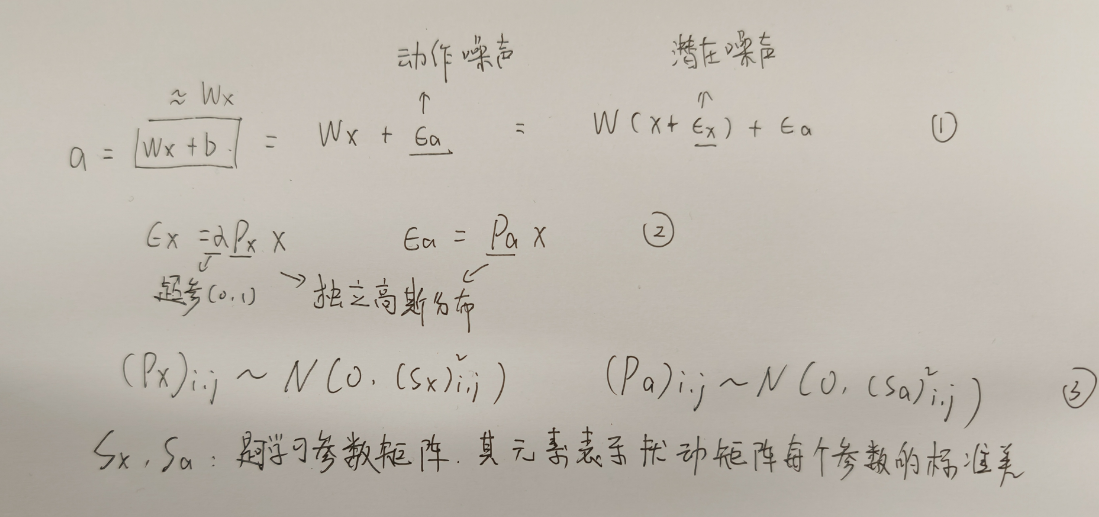 动作噪声 潜在噪声
≈ Wx
a = Wx + b. = Wx + ϵa = W(x + ϵx) + ϵa ①
ϵx = αPx x ϵa = Pa x ②
超参(0,1) → 独立高斯分布
(Px)i,j ~ N(0, (Sx)²i,j) (Pa)i,j ~ N(0, (Sa)²i,j) ③
Sx, Sa: 可学习参数矩阵. 其元素表示扰动矩阵每个参数的标准差